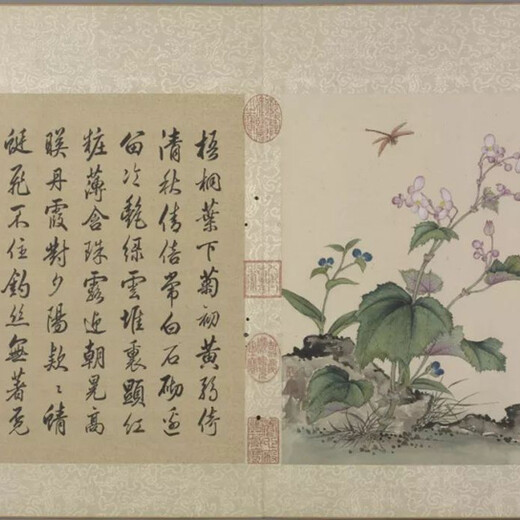 梧桐葉下菊初黄弱倚
清秋倩倍常白石砌邊
留冷艷綠雲堆裏顯紅
粧薄含珠露近朝晃高
映丹霞對夕陽款〻蜻
蜓飛不住釣絲無著